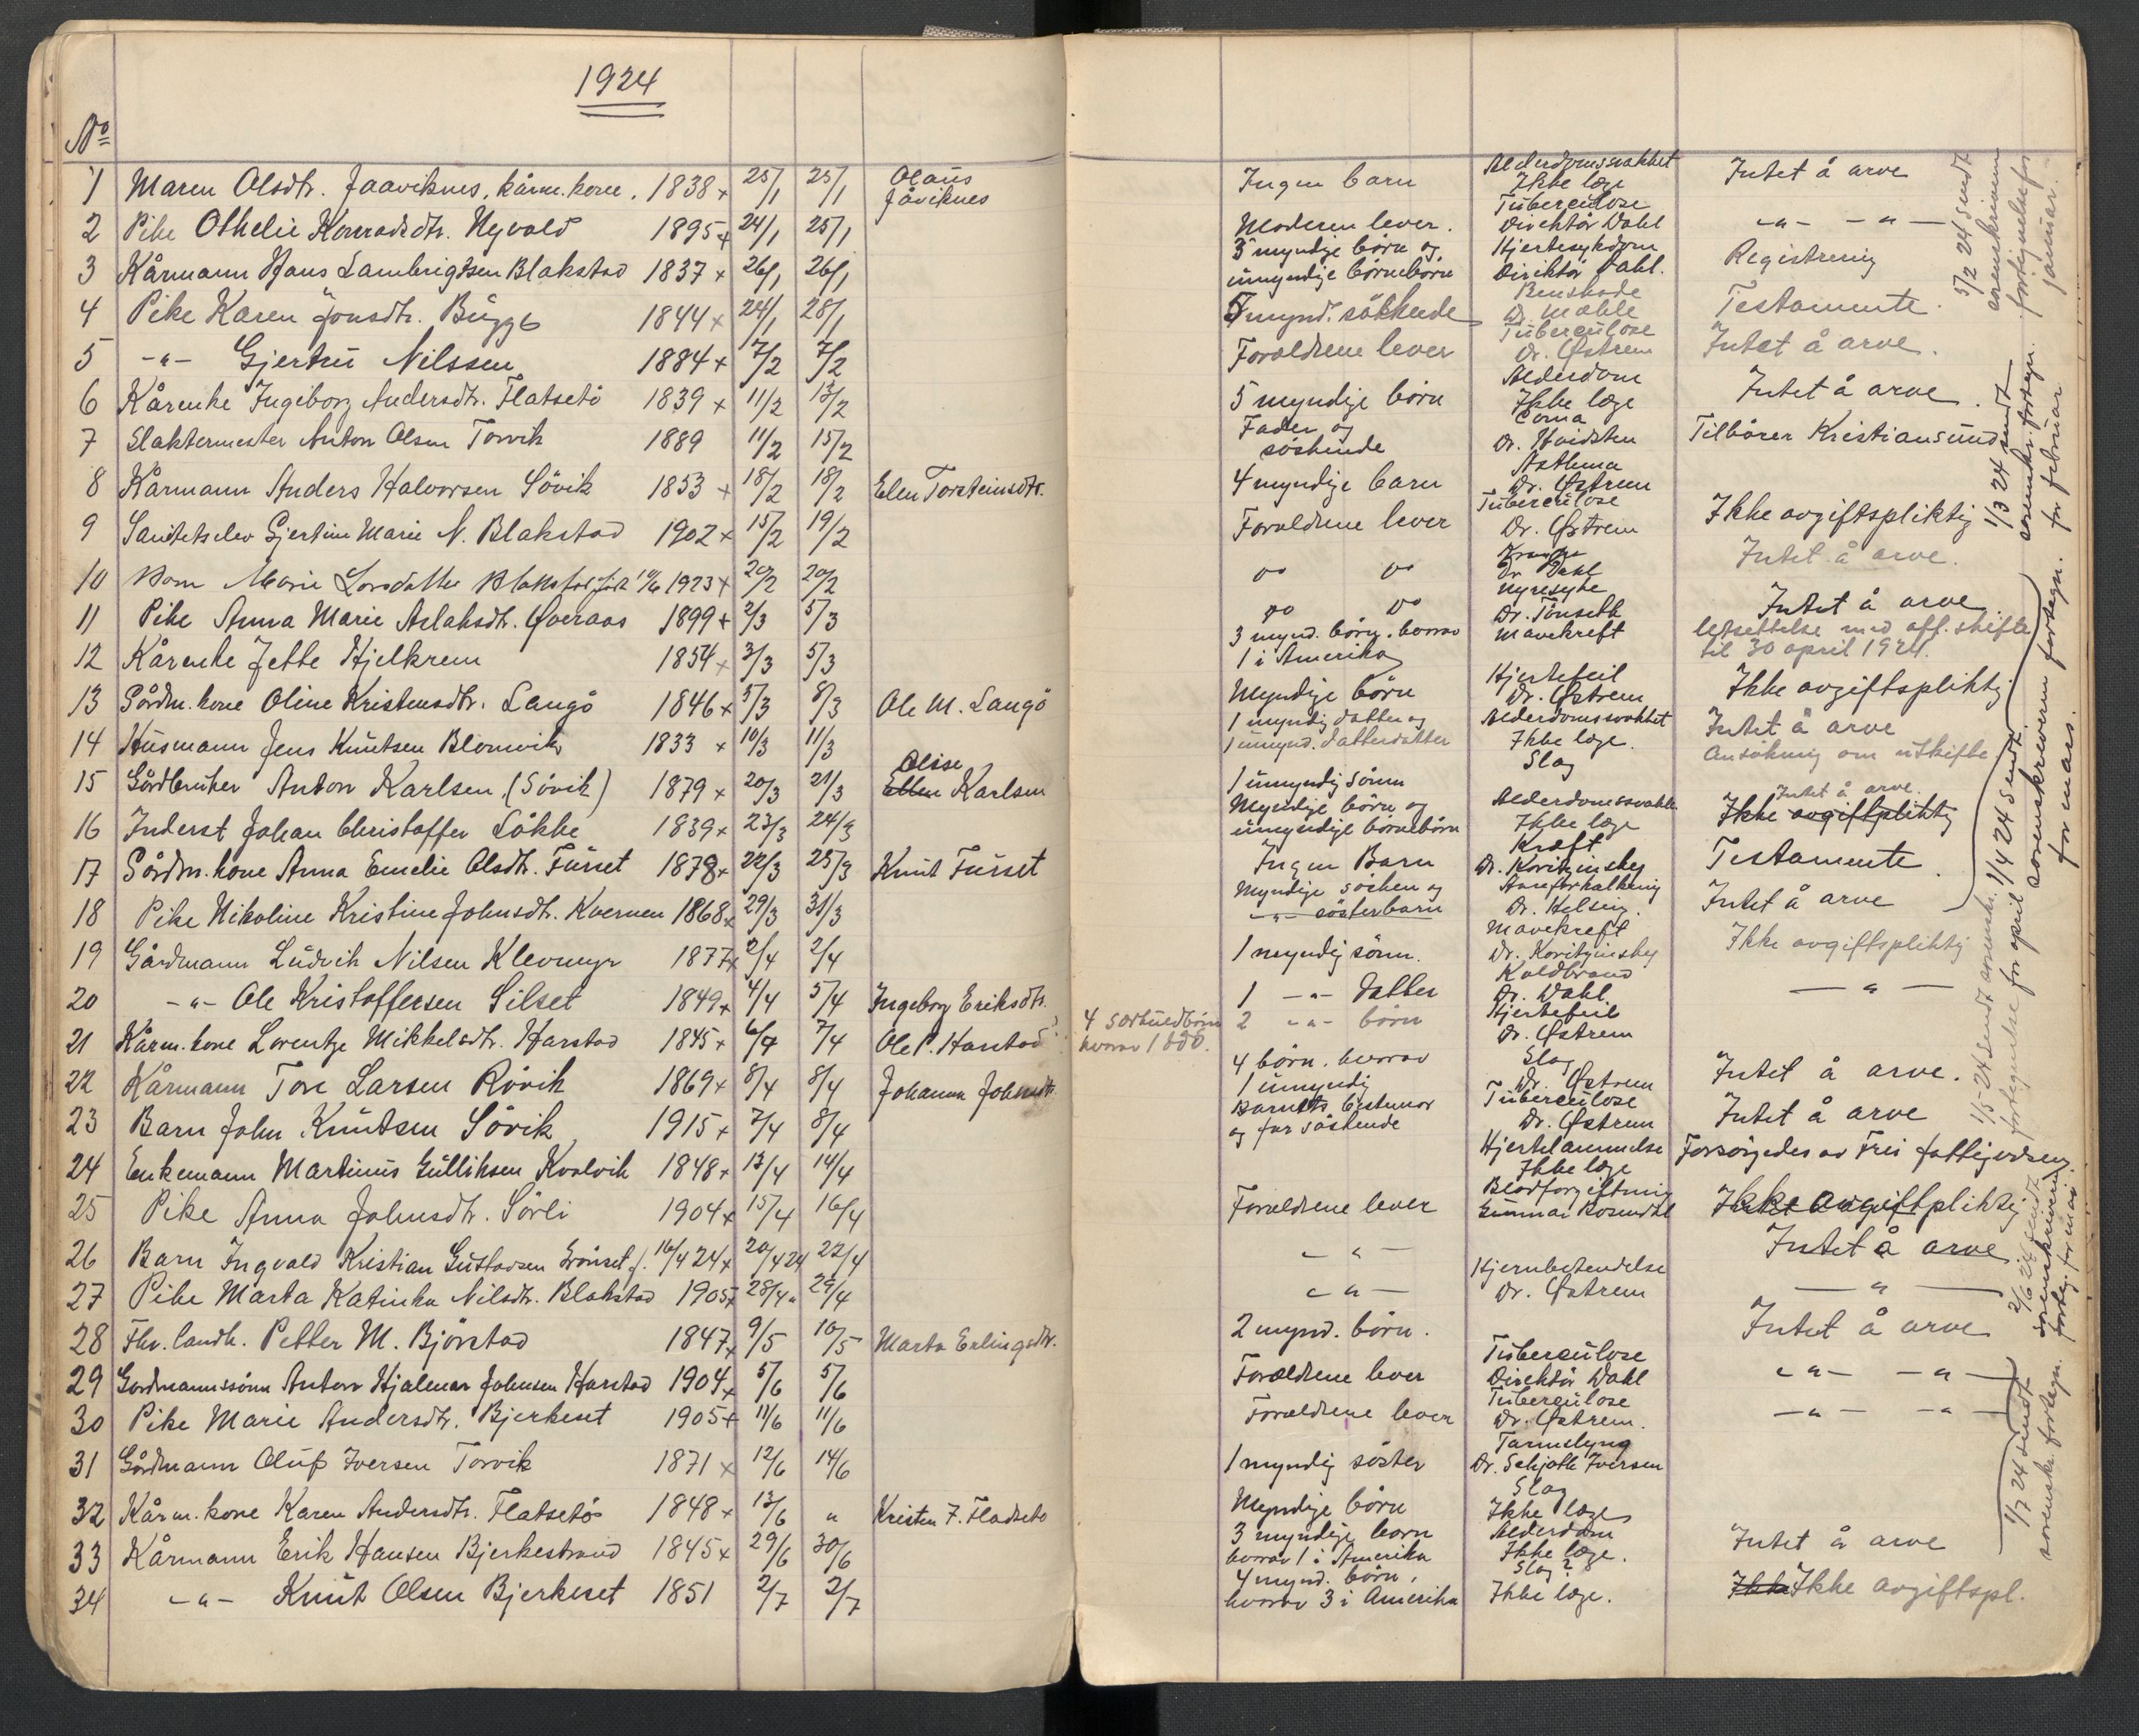 1924
No
1 Maren Olsdtr. Jaaviknes, kårm. kone. 1838 x 25/1 25/1 Olaus Jåviknes
2 Pike Othelie Konradsdtr. Nyvold 1895 x 24/1 25/1
3 Kårmann Hans Lambrigtsen Blakstad 1837 x 26/1 26/1
4 Pike Karen Jonsdtr. Bugge 1844 x 24/1 28/1
5 -"- Gjertru Nilssen 1884 x 7/2 7/2
6 Kårenke Ingeborg Andersdtr. Flatsetö 1839 x 11/2 13/2
7 Slaktermester Anton Olsen Torvik 1889 11/2 15/2
8 Kårmann Anders Halvorsen Sövik 1853 x 18/2 18/2 Elen Torsteinsdtr.
9 Sanitetselev Gjertine Marie N. Blakstad 1902 x 15/2 19/2
10 Barn Marie Larsdatter Blakstad født 10/6 1923 x 20/2 20/2
11 Pike Anna Marie Aslaksdtr. Øveraas 1899 x 2/3 5/3
12 Kårenke Jette Hjelkrem 1854 x 3/3 5/3
13 Gårdm. kone Oline Kristensdtr. Langö 1846 x 5/3 8/3 Ole M. Langö
14 Husmann Jens Knutsen Blomvik 1833 x 10/3 11/3
15 Gårdbruker Anton Karlsen (Sövik) 1879 x 20/3 21/3 Ellen Olise Karlsen
16 Inderst Johan Christoffer Lökke 1839 x 23/3 24/3
17 Gårdm. kone Anna Emelie Olsdtr. Furset 1878 x 22/3 25/3 Knut Furset
18 Pike Nikoline Kristine Johnsdtr. Kvernen 1868 x 29/3 31/3
19 Gårdmann Ludvik Nilsen Klevmyr 1877 x 2/4 2/4
20 -"- Ole Kristoffersen Silset 1849 x 4/4 5/4 Ingeborg Eriksdtr.
21 Kårm. kone Lorentze Mikkelsdtr. Harstad 1845 x 6/4 7/4 Ole P. Harstad
22 Kårmann Tore Larsen Rövik 1869 x 8/4 8/4 Johanna Johnsdtr.
23 Barn John Knutsen Sövik 1915 x 7/4 8/4
24 Enkemann Martinus Gulliksen Kvalvik 1848 x 13/4 14/4
25 Pike Anna Johnsdtr. Sörli 1904 x 15/4 16/4
26 Barn Ingvald Kristian Gustavsen Grönset f. 16/4 24 x 20/4 24 22/4
27 Pike Marta Katinka Nilsdtr. Blakstad 1905 x 28/4 29/4
28 Fhv. landh. Petter M. Bjørstad 1847 x 9/5 10/5 Marta Erlingsdtr.
29 Gardmannssönn Anton Hjalmar Johnsen Harstad 1904 x 5/6 5/6
30 Pike Marie Andersdtr. Bjerkeset 1905 x 11/6 11/6
31 Gårdmann Oluf Iversen Torvik 1871 x 12/6 14/6
32 Kårm. kone Karen Andersdtr. Flatsetö 1848 x 13/6 " Kristen F. Fladseto
33 Kårmann Erik Hansen Bjerkestrand 1845 x 29/6 30/6
34 -"- Knut Olsen Bjerkeset 1851 2/7 2/7
Ingen barn Alderdomssvakhet Ikke læge Intet å arve
Moderen lever. Tuberculose Direktör Dahl -"- -"-
3 myndige börn og umyndige börnebörn Hjertesykdom Direktör Dahl. Registrering
5 mynd. söskende Benskade Dr. Mohle Testamente.
Foreldrene lever Tuberculose Dr. Østrem Intet å arve.
5 myndige börn Alderdom Ikke læge Intet å arve.
Fader og söskende Coma Dr. Hvidsten Tilhörer Kristiansund
4 myndige barn Asthma Dr. Østrem
Foreldrene lever Tuberculose Dr. Østrem Ikke avgiftspliktig
do do Krampe Dr Dahl Intet å arve.
do do Nyresyke Dr. Tönseth Intet å arve
3 mynd. börn, hvorav 1 i Amerika Mavekreft Utsettelse med off. skifte til 30 april 1924.
Myndige börn Hjertefeil Dr. Østrem Ikke avgiftspliktig
1 myndig datter og 1 umynd. datterdatter Alderdomssvakhet Ikke læge. Intet å arve
1 umyndig sönn Slag Ansökning om utskifte
Myndige börn og umyndige börnebörn Alderdomssvakh. Ikke læge Ikke avgiftpliktig Intet å arve.
Ingen Barn Kreft Dr. Koritzinsky Testamente.
Myndige sösken og -"- sösterbarn Aareforkalkning Dr. Helsing. Intet å arve
1 myndig sönn. Mavekreft Dr. Koritzinsky Ikke avgiftspliktig
1 -"- datter Koldbrand Dr. Dahl -"-
4 særkuldbörn hvorav 1 död. 2 -"- börn Hjertefeil Dr. Østrem
4 börn, hvorav 1 umyndig Slag Dr. Østrem Intet å arve.
Barnets bestemor og før söskende Tuberculose Dr. Østrem Intet å arve
Hjertelammelse Ikke læge Forsörgedes av Frei fattigvesen.
Foreldrene lever Blodforgiftning Gunnar Rosendal Ikke avgiftpliktig
-"- Intet å arve
-"- Hjernebetendelse Dr. Østrem -"-
2 mynd. börn. Intet å arve
Foreldrene lever Tuberculose Direktör Dahl -"- -"-
Foreldrene lever Tuberculose Dr. Østrem. -"- -"-
1 myndig söster Tarmslyng Dr. Schjöth Iversen
Myndige börn Slag Ikke læge
3 myndige barn hvorav 1 i Amerika Alderdom Ikke læge. Intet å arve
4 mynd. börn, hvorav 3 i Amerika Slag? Ikke læge. Ikke Ikke avgiftspl.
5/2 24 sendt sorenskriveren fortegnelse for januar.
1/3 24 sendt sorenskr. fortegn. for februar
1/4 24 sendt sorenskriveren fortegn. for mars.
1/5-24 sendt sorenskr. fortegnelse for april
2/6 24 sendt sorenskriveren forteg. for mai
1/7 24 sendt sorenskr. fortegn.